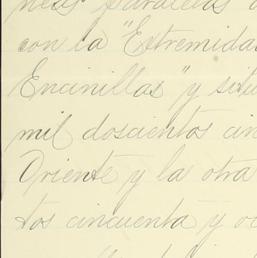 nes paralelas a
con la "Extremidad
Encinillas" y situ
mil doscientos cin
Oriente y la otra
tos cincuenta y oc